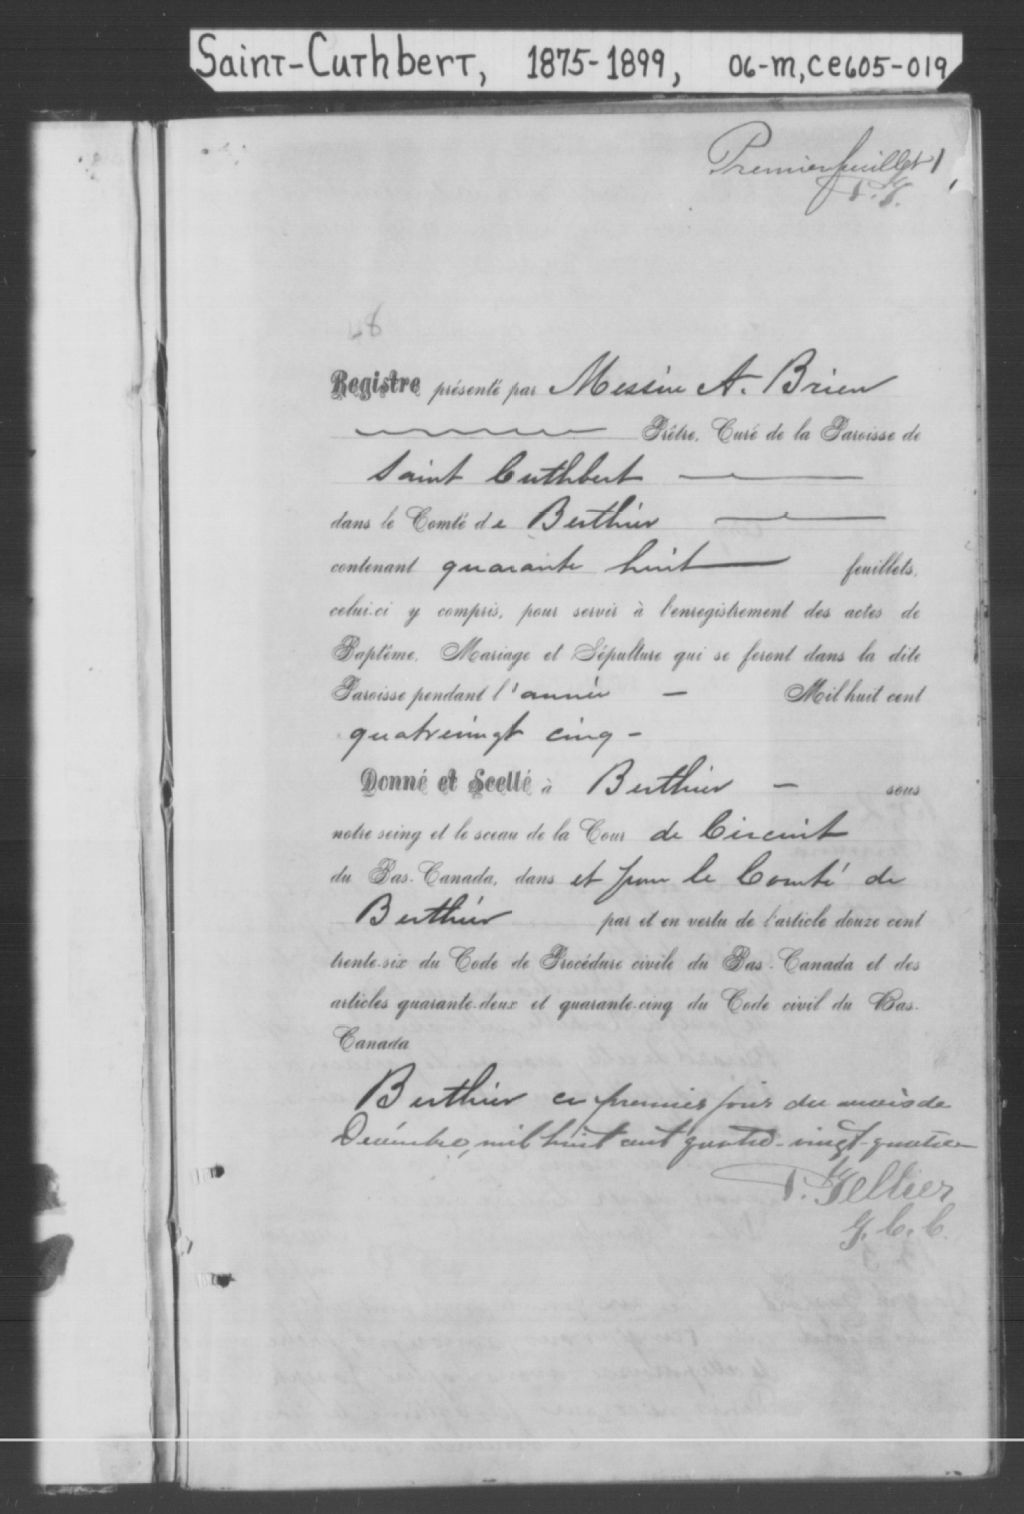 Saint-Cuthbert, 1875-1899, 06-M, CE605-019
Premier feuillet 1
T. G.
48
Registre présenté par Messire A. Brien
Prêtre, Curé de la Paroisse de
Saint Cuthbert
dans le Comté de Berthier
contenant quarante huit feuillets,
celui-ci y compris, pour servir à l'enregistrement des actes de
Baptême, Mariage et Sépulture qui se feront dans la dite
Paroisse pendant l'année - Mil huit cent
quatrevingt cinq -
Donné et Scellé à Berthier - sous
notre seing et le sceau de la Cour de Circuit
du Bas-Canada, dans et pour le Comté de
Berthier par et en vertu de l'article douze cent
trente-six du Code de Procédure civile du Bas-Canada et des
articles quarante-deux et quarante-cinq du Code civil du Bas-
Canada
Berthier ce premier jour du mois de
Décembre, mil huit cent quatre-vingt-quatre
G. C. C.